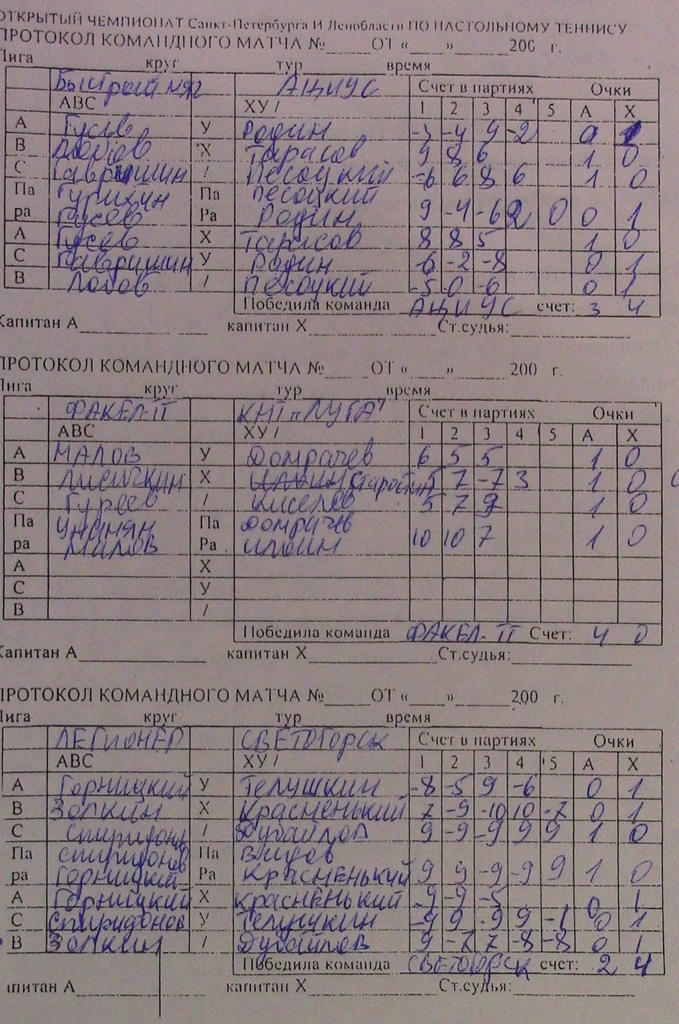 ОТКРЫТЫЙ ЧЕМПИОНАТ Санкт-Петербурга И Ленобласти ПО НАСТОЛЬНОМУ ТЕННИСУ
ПРОТОКОЛ КОМАНДНОГО МАТЧА №____ОТ «____»______200 г.
Лига круг тур время
Быстрый мяч АЦИУС Счет в партиях Очки
АВС ХУ/ 1 2 3 4 5 А Х
А Гусев У Родин -3 -4 9 -2 0 1
В Лобов Х Тарасов 9 8 6 1 0
С Гавришин / Песоцкий -6 6 8 6 1 0
Па Гурихин Па Песоцкий
ра Гусев Ра Родин 9 -4 -6 2 0 0 1
А Гусев Х Тарасов 8 8 5 1 0
С Гавришин У Родин -6 -2 -8 0 1
В Лобов / Песоцкий -5 -0 -6 0 1
Победила команда АЦИУС счет: 3 4
Капитан А____________ капитан Х____________Ст.судья:____________
ПРОТОКОЛ КОМАНДНОГО МАТЧА №____ОТ «____»______200 г.
Лига круг тур время
ФАКЕЛ-II КНТ "ЛУГА" Счет в партиях Очки
АВС ХУ/ 1 2 3 4 5 А Х
А МАЛОВ У Домрачев 6 5 5 1 0
В Лисичкин Х Старостин 5 7 -7 3 1 0
С Гуреев / Киселев 5 7 9 1 0
Па Унанян Па Домрачев
ра Малов Ра 10 10 7 1 0
А Х
С У
В /
Победила команда ФАКЕЛ-II Счет: 4 0
Капитан А____________ капитан Х____________Ст.судья:____________
ПРОТОКОЛ КОМАНДНОГО МАТЧА №____ОТ «____»______200 г.
Лига круг тур время
ЛЕГИОНЕР СВЕТОГОРСК Счет в партиях Очки
АВС ХУ/ 1 2 3 4 5 А Х
А Горницкий У Телушкин -8 -5 9 -6 0 1
В Золкин Х Красненький 7 -9 -10 10 -7 0 1
С Спиридонов / Дубайлов 9 -9 -9 9 9 1 0
Па Спиридонов Па
ра Горницкий Ра Красненький 9 9 -9 -9 9 1 0
А Горницкий Х Красненький -9 -9 -5 0 1
С Спиридонов У Телушкин -9 9 -9 9 -1 0 1
В Золкин / Дубайлов 9 -7 7 -8 -8 0 1
Победила команда СВЕТОГОРСК счет: 2 4
апитан А____________ капитан Х____________Ст.судья:____________